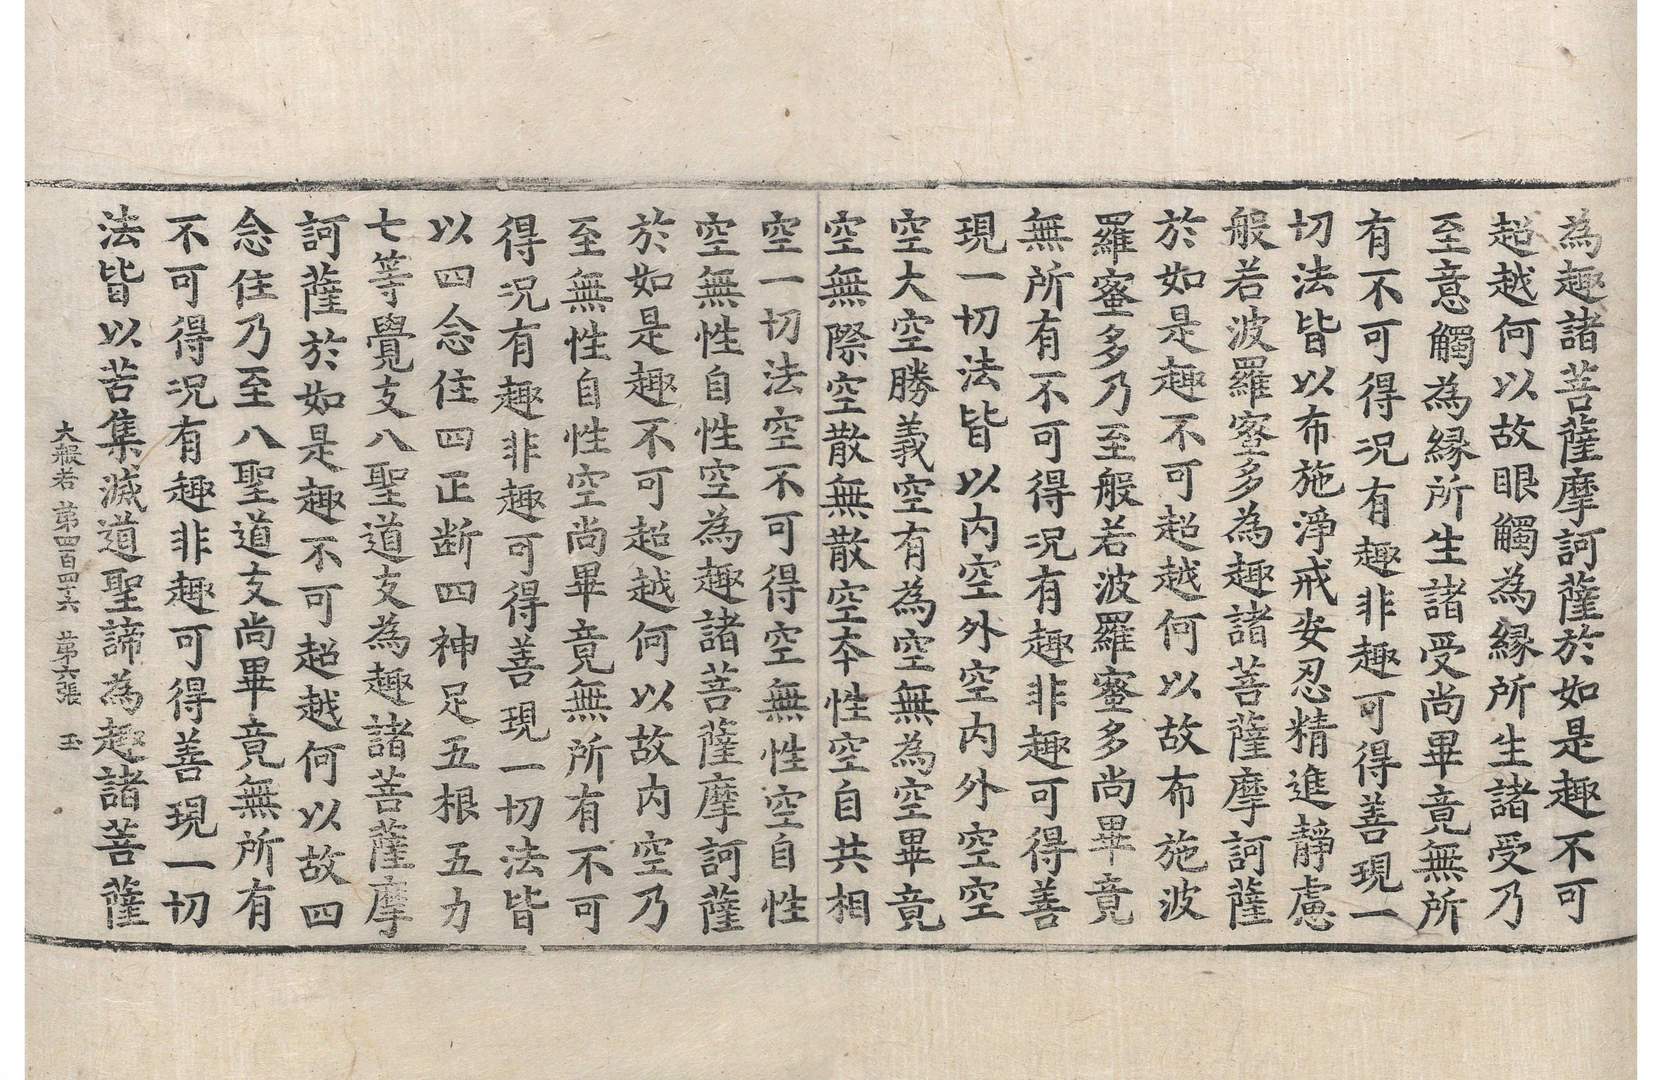 為趣諸菩薩摩訶薩於如是趣不可
超越何以故眼觸為縁所生諸受乃
至意觸為縁所生諸受尚畢竟無所
有不可得况有趣非趣可得善現一
切法皆以布施淨戒安忍精進靜慮
般若波羅蜜多為趣諸菩薩摩訶薩
於如是趣不可超越何以故布施波
羅蜜多乃至般若波羅蜜多尚畢竟
無所有不可得况有趣非趣可得善
現一切法皆以内空外空内外空空
空大空勝義空有為空無為空畢竟
空無際空散無散空夲性空自共相
空一切法空不可得空無性空自性
空無性自性空為趣諸菩薩摩訶薩
於如是趣不可超越何以故内空乃
至無性自性空尚畢竟無所有不可
得况有趣非趣可得善現一切法皆
以四念住四正断四神足五根五力
七等覺支八聖道支為趣諸菩薩摩
訶薩於如是趣不可超越何以故四
念住乃至八聖道支尚畢竟無所有
不可得况有趣非趣可得善現一切
法皆以苦集滅道聖諦為趣諸菩薩
大般若 第四百四十六 第六張 玉